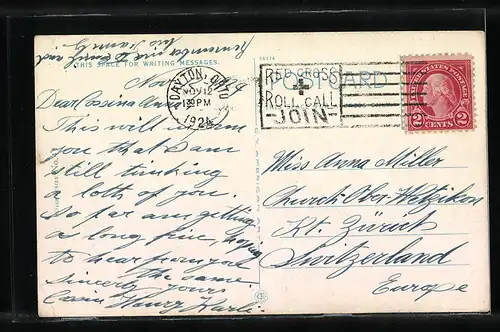 Remember me to Emily and
his Family.
THIS SPACE FOR WRITING MESSAGES.
56374
POST CARD
Nov 1924
Dear Cossina Anna
This will inform
you that I am
still thinking
a lotts of you.
So far am getting
a long fine, hoping
to hear from you
the same.
Sincerly yours
Cosin Henry Karli.
DAYTON, OHIO
NOV 12
PM
1924
RED CROSS
ROLL CALL
-JOIN-
UNITED STATES POSTAGE
2 CENTS 2
Miss Anna Müller
Church Ober-Wetzikon
Kt. Zürich
Switzerland
Europe